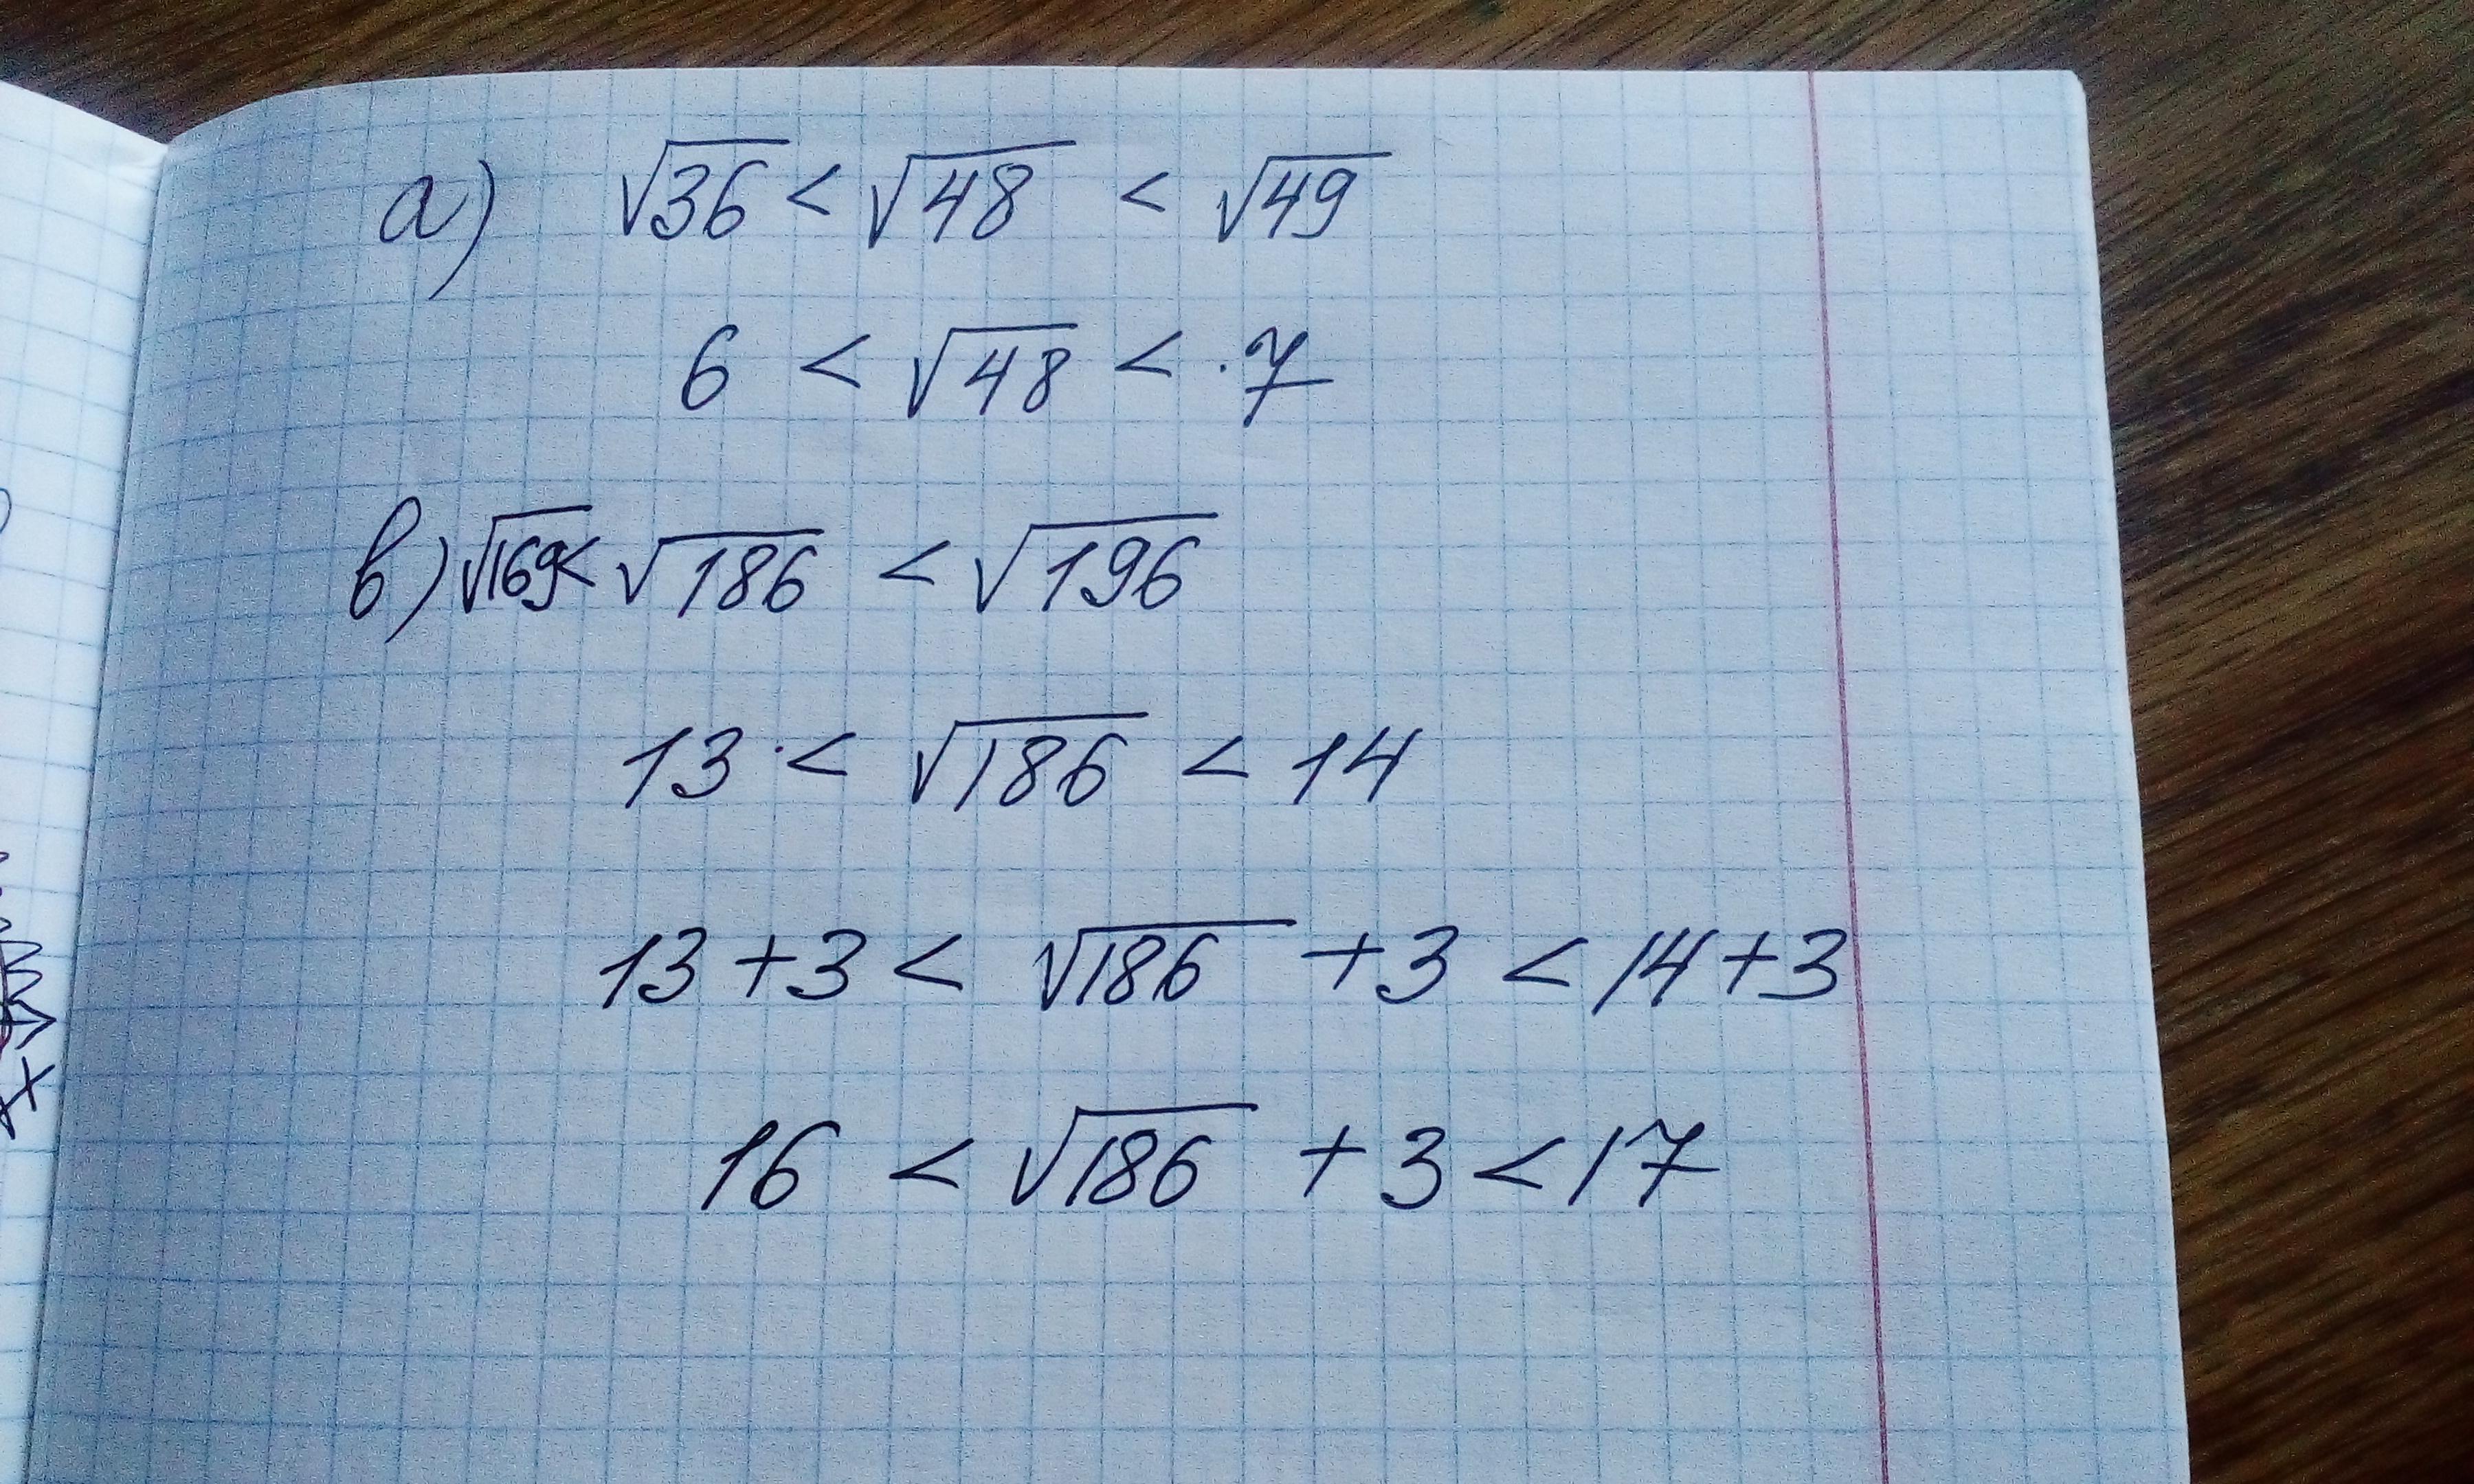 а) √36 < √48 < √49
6 < √48 < 7
в) √169 < √186 < √196
13 < √186 < 14
13 + 3 < √186 + 3 < 14 + 3
16 < √186 + 3 < 17
х